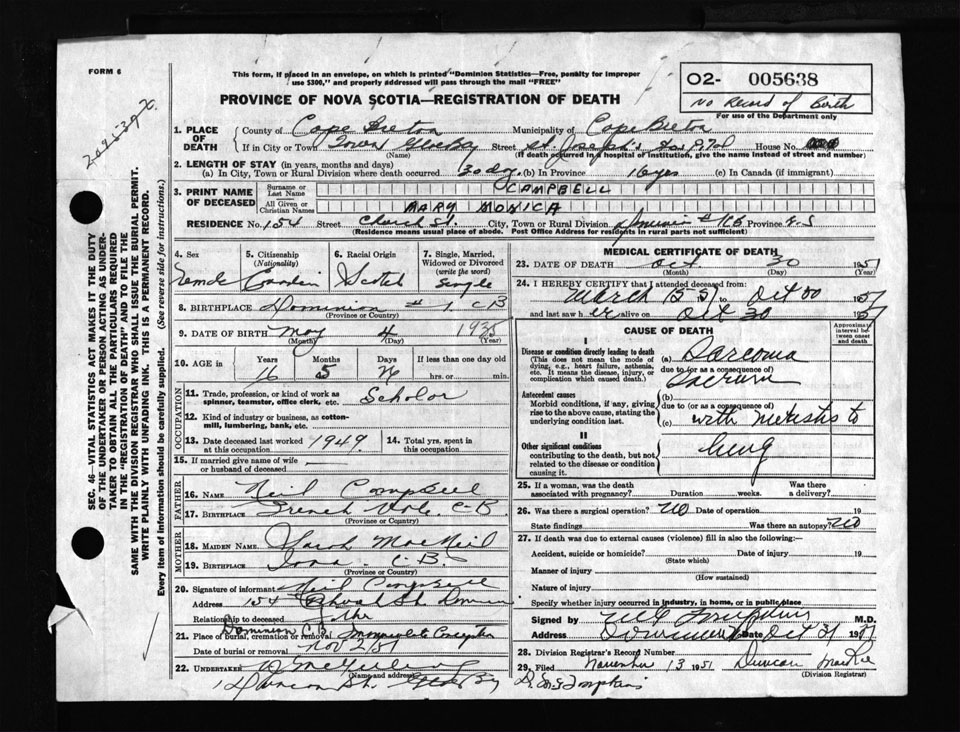 FORM 6
This form, if placed in an envelope, on which is printed "Dominion Statistics—Free, penalty for improper
use $300," and properly addressed will pass through the mail "FREE"
PROVINCE OF NOVA SCOTIA—REGISTRATION OF DEATH
02- 005638
No Record of Birth
For use of the Department only
1. PLACE OF DEATH
County of Cape Breton Municipality of Cape Breton
If in City or Town Town Glace Bay Street St. Joseph's Hospital House No.
(Name) (If death occurred in a hospital or institution, give the name instead of street and number)
2. LENGTH OF STAY (in years, months and days)
(a) In City, Town or Rural Division where death occurred 30 dy. (b) in Province 16 yrs (c) in Canada (if immigrant)
3. PRINT NAME OF DECEASED
Surname or Last Name CAMPBELL
All Given or Christian Names MARY MONICA
RESIDENCE No. 154 Street City, Town or Rural Division Province N.S
(Residence means usual place of abode. Post Office Address for residents in rural parts not sufficient)
4. Sex
5. Citizenship (Nationality)
6. Racial Origin Scotch
7. Single, Married, Widowed or Divorced (write the word) Single
8. BIRTHPLACE Dominion # 1. C B
(Province or Country)
9. DATE OF BIRTH May 4 1935
(Month) (Day) (Year)
10. AGE in Years Months Days If less than one day old
16 5 hrs. or min.
OCCUPATION
11. Trade, profession, or kind of work as spinner, teamster, office clerk, etc. Scholar
12. Kind of industry or business, as cotton-mill, lumbering, bank, etc.
13. Date deceased last worked at this occupation 1949
14. Total yrs. spent in this occupation
15. If married give name of wife or husband of deceased
FATHER
16. NAME Neil Campbell
17. BIRTHPLACE French Vale C-B.
(Province or Country)
MOTHER
18. MAIDEN NAME Sarah MacNeil
19. BIRTHPLACE Iona C B.
(Province or Country)
20. Signature of informant Neil Campbell
Address 154 St. Dominion
Relationship to deceased Father
21. Place of burial, cremation or removal Dominion C B Immaculate Conception
Date of burial or removal Nov 2/51
22. UNDERTAKER
St. Glace Bay
MEDICAL CERTIFICATE OF DEATH
23. DATE OF DEATH Oct. 30 1951
(Month) (Day)
24. I HEREBY CERTIFY that I attended deceased from
March 15 51 to Oct 30 1951
and last saw her alive on Oct 30 1951
CAUSE OF DEATH
Approximate interval between onset and death
I
Disease or condition directly leading to death
(This does not mean the mode of dying, e.g., heart failure, asthenia, etc. It means the disease, injury, or complication which caused death.)
(a) Sarcoma
due to (or as a consequence of)
Sacrum
Antecedent causes
Morbid conditions, if any, giving rise to the above cause, stating the underlying condition last.
(b)
due to (or as a consequence of)
(c) with metastasis to
lung
II
Other significant conditions
contributing to the death, but not related to the disease or condition causing it.
25. If a woman, was the death associated with pregnancy? Duration weeks. Was there a delivery?
26. Was there a surgical operation? No Date of operation 19
State findings Was there an autopsy? No
27. If death was due to external causes (violence) fill in also the following:—
Accident, suicide or homicide? Date of injury 19
(State which)
Manner of injury
(How sustained)
Nature of injury
Specify whether injury occurred in industry, in home, or in public place
Signed by M.D.
Address Dominion Date Oct 31 1951
28. Division Registrar's Record Number
29. Filed November 13 1951 Duncan
(Division Registrar)
D. Tompkins
SEC. 46—VITAL STATISTICS ACT MAKES IT THE DUTY
OF THE UNDERTAKER OR PERSON ACTING AS UNDER-
TAKER TO OBTAIN ALL THE PARTICULARS REQUIRED
IN THE "REGISTRATION OF DEATH" AND TO FILE THE
SAME WITH THE DIVISION REGISTRAR WHO SHALL ISSUE THE BURIAL PERMIT.
WRITE PLAINLY WITH UNFADING INK. THIS IS A PERMANENT RECORD.
Every item of information should be carefully supplied. (See reverse side for instructions.)